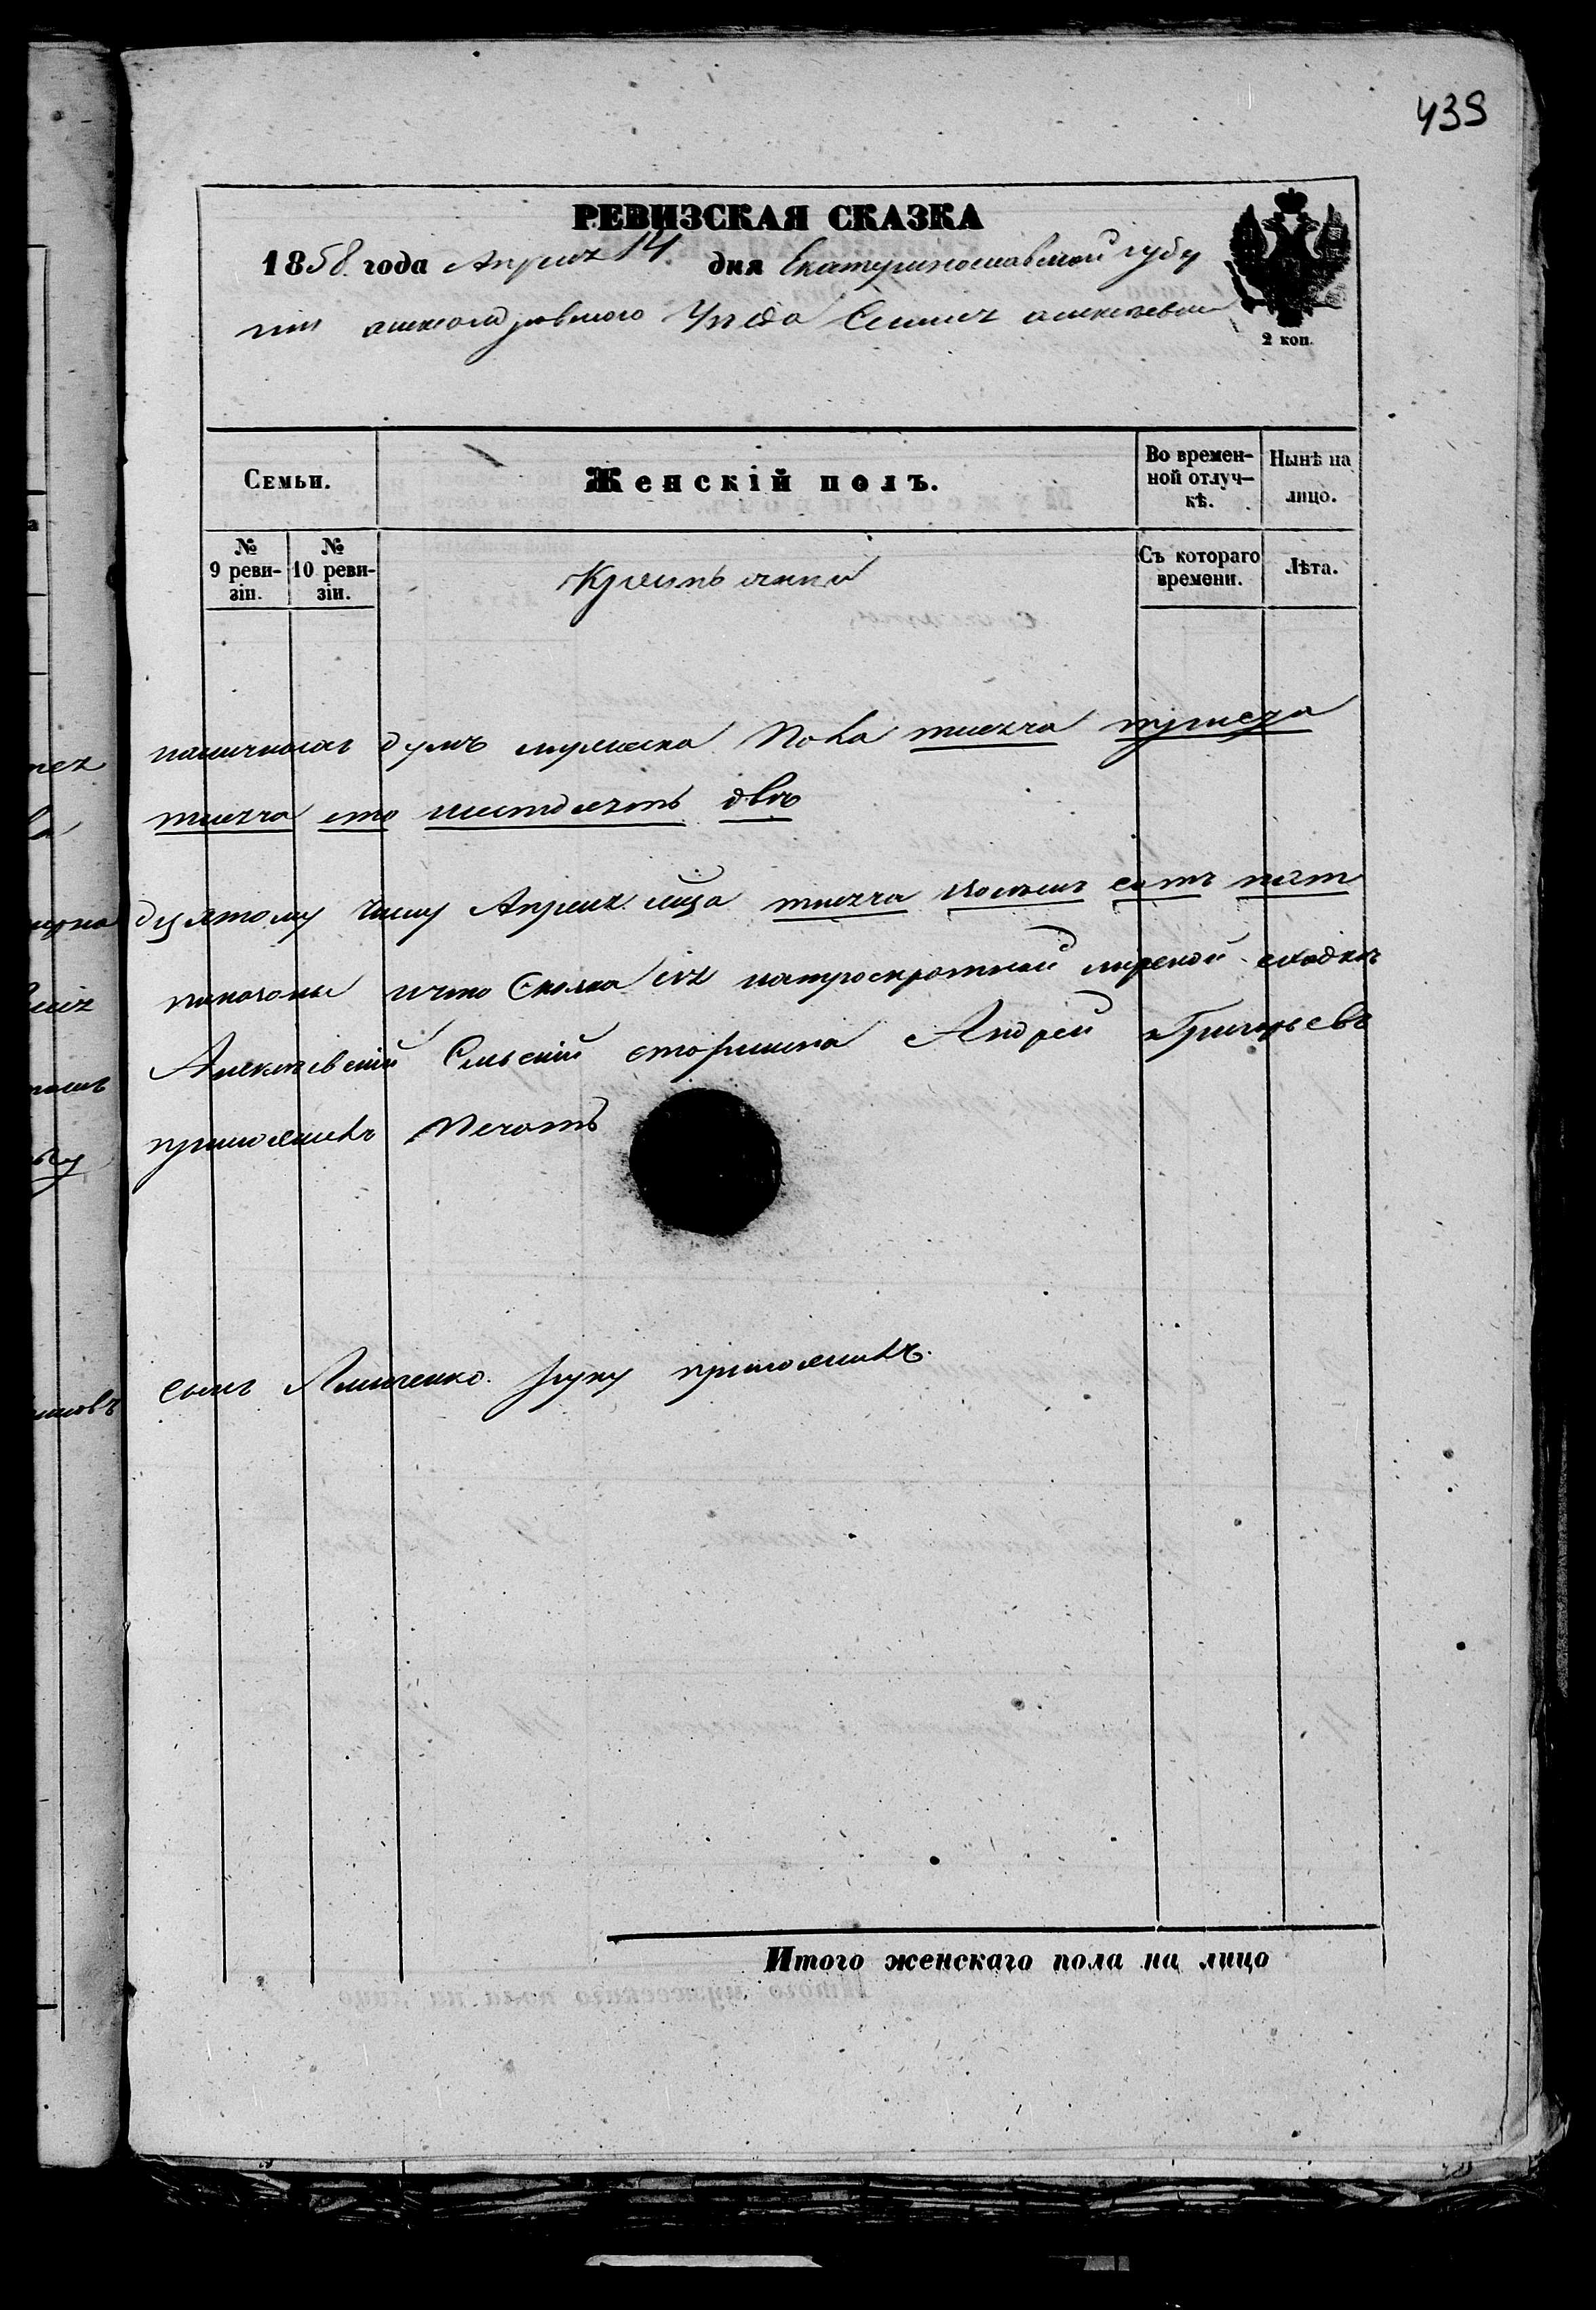 439
РЕВИЗСКАЯ СКАЗКА
1858 года Апреля 14 дня Екатеринославской губе
ніи александровского Уезда Селенія алексеевки
2 коп.
Семьи.
Женскій полъ.
Во времен-
ной отлуч-
кѣ.
Нынѣ на
лицо.
№
9 реви-
зіи.
№
10 реви-
зіи.
Крестьянкой
Съ котораго
времени.
Лѣта.
наличныхъ душъ мужеска Пола тысяча триста
тысяча сто шестдесятъ двѣ
десятому числу Апреля мца тысяча восемь сотъ пят
показаны и что Сказка сія на мирской сходкѣ
Алексѣевскій Сельскій старшина Андрей Григорьевъ
приложилъ Печать
сынъ руку приложилъ.
Итого женскаго пола на лицо